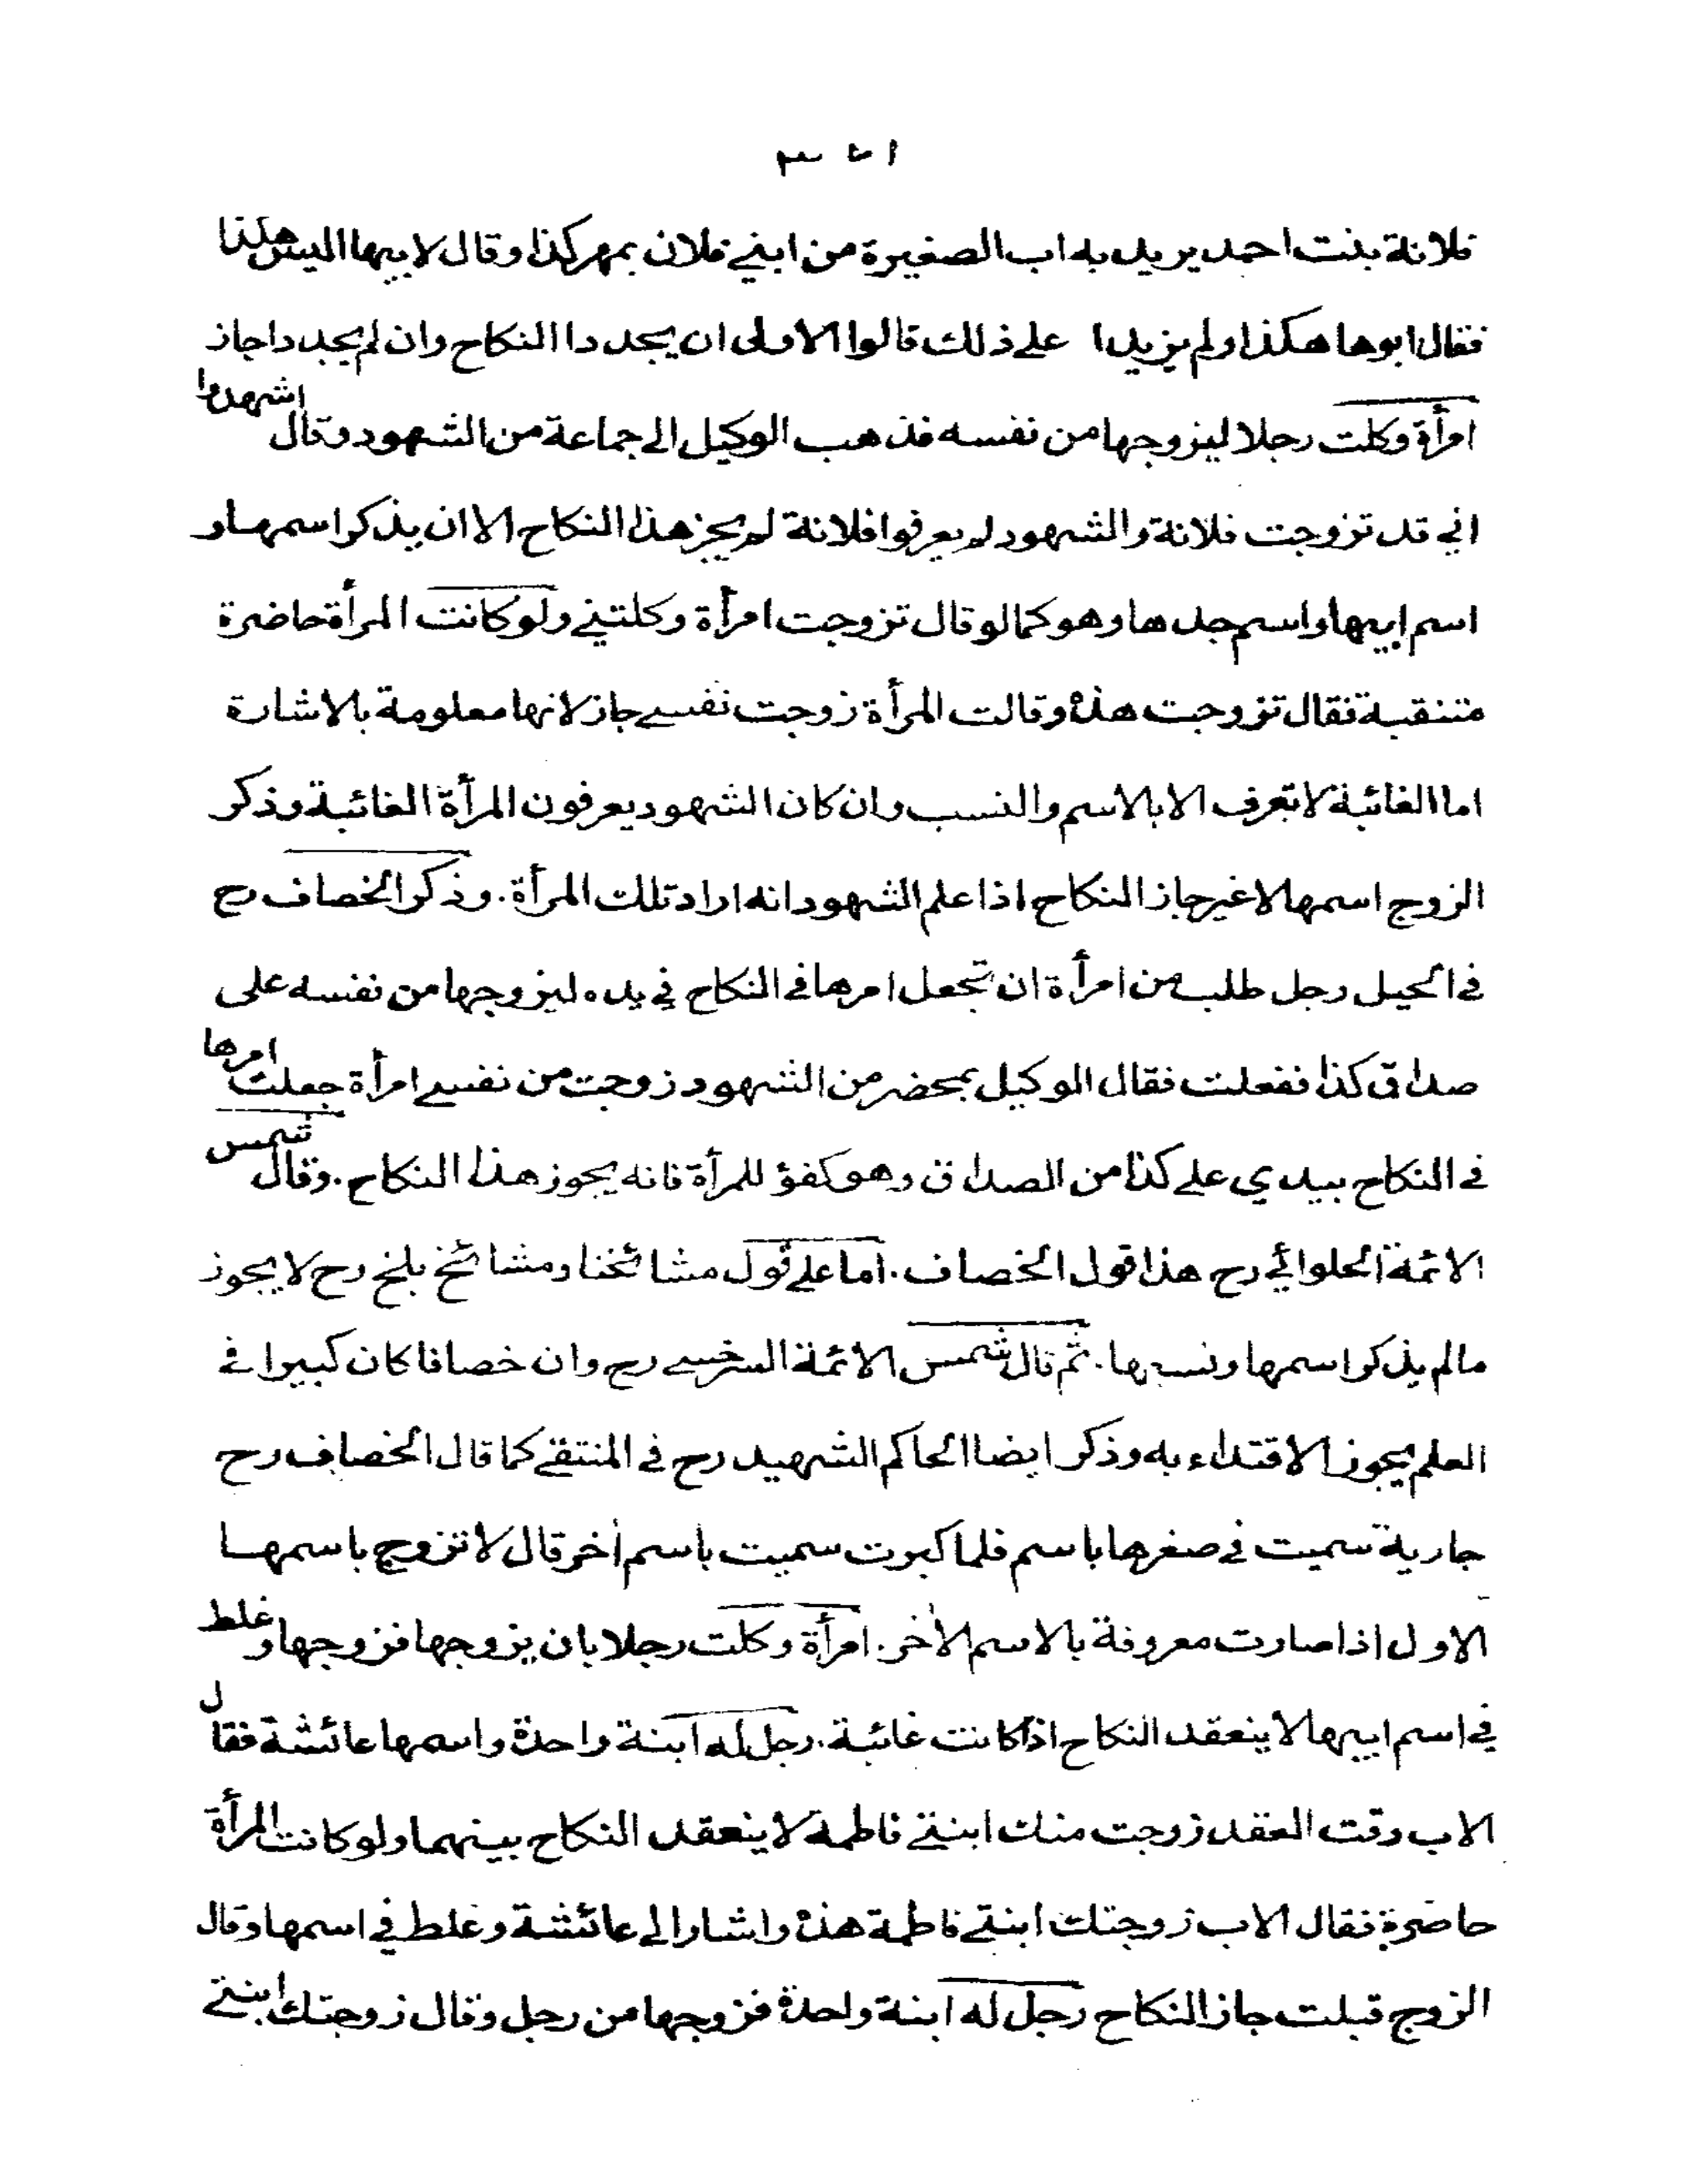 فلانة بنت احمد يريد به اب الصغيرة من ابني فلان بمهر كذا وقال لابيها اليس هكذا
فقال ابوها هكذا ولم يزيدا على ذلك قالوا الاولى ان يجددا النكاح وان لم يجددا جاز
امرأة وكلت رجلا ليزوجها من نفسه فذهب الوكيل الى جماعة من الشهود وقال اشهدوا
اني قد تزوجت فلانة والشهود لم يعرفوا فلانة لم يجز هذا النكاح الا ان يذكر اسمها و
اسم ابيها واسم جدها وهو كما لو قال تزوجت امرأة وكلتني ولو كانت المرأة حاضرة
متنقبة فقال تزوجت هذه وقالت المرأة زوجت نفسي جاز لانها معلومة بالاشارة
اما الغائبة لا تعرف الا بالاسم والنسب وان كان الشهود يعرفون المرأة الغائبة وذكر
الزوج اسمها لا غير جاز النكاح اذا علم الشهود انه اراد تلك المرأة. وذكر الخصاف رح
في الحيل رجل طلب من امرأة ان تجعل امرها في النكاح في يده ليزوجها من نفسه على
صداق كذا ففعلت فقال الموكيل بمحضر من الشهود زوجت من نفسي امرأة جعلت امرها
في النكاح بيدي على كذا من الصداق وهو كفؤ للمرأة فانه يجوز هذا النكاح. وقال شمس
الائمة الحلوائي رح هذا قول الخصاف. اما على قول مشائخنا ومشائخ بلخ رح لا يجوز
مالم يذكر اسمها ونسبها. ثم قال شمس الائمة السرخسي رح وان خصافا كان كبيرا في
العلم يجوز الاقتداء به وذكر ايضا الحاكم الشهيد رح في المنتقى كما قال الخصاف رح
جارية سميت في صغرها باسم فلما كبرت سميت باسم اخر قال لا تزوج باسمها
الاول اذا صارت معروفة بالاسم الاخر. امرأة وكلت رجلا بان يزوجها فزوجها وغلط
في اسم ابيها لا ينعقد النكاح اذا كانت غائبة. رجل له ابنة واحدة واسمها عائشة فقال
الاب وقت العقد زوجت منك ابنتي فاطمة لا ينعقد النكاح بينهما ولو كانت المرأة
حاضرة فقال الاب زوجتك ابنتي فاطمة هذه واشار الى عائشة وغلط في اسمها وقال
الزوج قبلت جاز النكاح رجل له ابنة واحدة فزوجها من رجل وقال زوجتك ابنتي